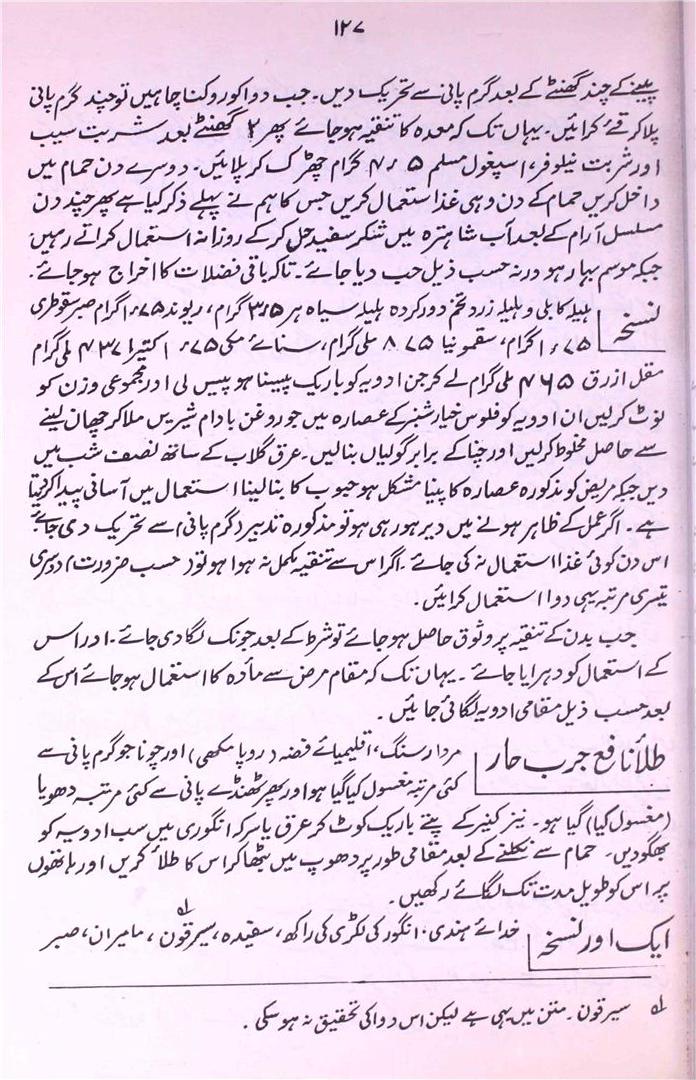 ۱۲۷
پینے کے چند گھنٹے کے بعد گرم پانی سے تحریک دیں۔ جب دوا کو روکنا چاہیں تو چند گرم پانی
پلا کر قئے کرائیں۔ یہاں تک کہ معدہ کا تنقیہ ہو جائے پھر ۲ گھنٹے بعد شربت سیب
اور شربت نیلوفر، اسپغول مسلم ۴٫۵ گرام چھڑک کر پلائیں۔ دوسرے دن حمام میں
داخل کریں حمام کے دن وہی غذا استعمال کریں جس کا ہم نے پہلے ذکر کیا ہے پھر چند دن
مسلسل آرام کے بعد آب شاہترہ میں شکر سفید حل کر کے روزانہ استعمال کراتے رہیں
جبکہ موسم بہار ہو ورنہ حسب ذیل حب دیا جائے۔ تاکہ باقی فضلات کا اخراج ہو جائے۔
نسخہ ہلیلہ کابلی و ہلیلہ زرد تخم دور کردہ ہلیلہ سیاہ ہر ۳٫۵ گرام، ریوند ۱٫۷۵ گرام صبر سقوطری
۱٫۷۵ گرام، سقمونیا ۸۷۵ ملی گرام، سنائے مکی ۱٫۷۵ کتیرا ۴۳۷ ملی گرام
مقل ازرق ۴۶۵ ملی گرام لے کر جن ادویہ کو باریک پیسنا ہو پیس لی اور مجموعی وزن کو
نوٹ کر لیں ان ادویہ کو فلوس خیار شنبر کے عصارہ میں جو روغن بادام شیریں ملا کر چھان لینے
سے حاصل مخلوط کر لیں اور چنا کے برابر گولیاں بنالیں۔ عرق گلاب کے ساتھ نصف شب میں
دیں جبکہ مریض کو مذکورہ عصارہ کا پینا مشکل ہو حبوب کا بنا لینا استعمال میں آسانی پیدا کر دیتا
ہے۔ اگر عمل کے ظاہر ہونے میں دیر ہو رہی ہو تو مذکورہ تدبیر (گرم پانی) سے تحریک دی جائے
اس دن کوئی غذا استعمال نہ کی جائے۔ اگر اس سے تنقیہ مکمل نہ ہوا ہو تو (حسب ضرورت) دوسری
تیسری مرتبہ یہی دوا استعمال کرائیں۔
جب بدن کے تنقیہ پر وثوق حاصل ہو جائے تو شرط کے بعد جونک لگا دی جائے۔ اور اس
کے استعمال کو دہرایا جائے۔ یہاں تک کہ مقام مرض سے مادہ کا استعمال ہو جائے اس کے
بعد حسب ذیل مقامی ادویہ لگائی جائیں۔
طلأ نافع جرب حار مردار سنگ، اقلیمیائے فضہ (روپا مکھی) اور چونا جو گرم پانی سے
کئی مرتبہ مغسول کیا گیا ہو اور پھر ٹھنڈے پانی سے کئی مرتبہ دھویا
(مغسول کیا) گیا ہو۔ نیز کنیر کے پتے باریک کوٹ کر عرق یا سرکہ انگوری میں سب ادویہ کو
بھگو دیں۔ حمام سے نکلنے کے بعد مقامی طور پر دھوپ میں بٹھا کر اس کا طلأ کریں اور ہاتھوں
پر اس کو طویل مدت تک لگائے رکھیں۔
ایک اور نسخہ خدائے ہندی، انگور کی لکڑی کی راکھ، سفیدہ، سیرقون، مامیران، صبر
لہ سیرقون۔ متن میں یہی ہے لیکن اس دوا کی تحقیق نہ ہو سکی۔